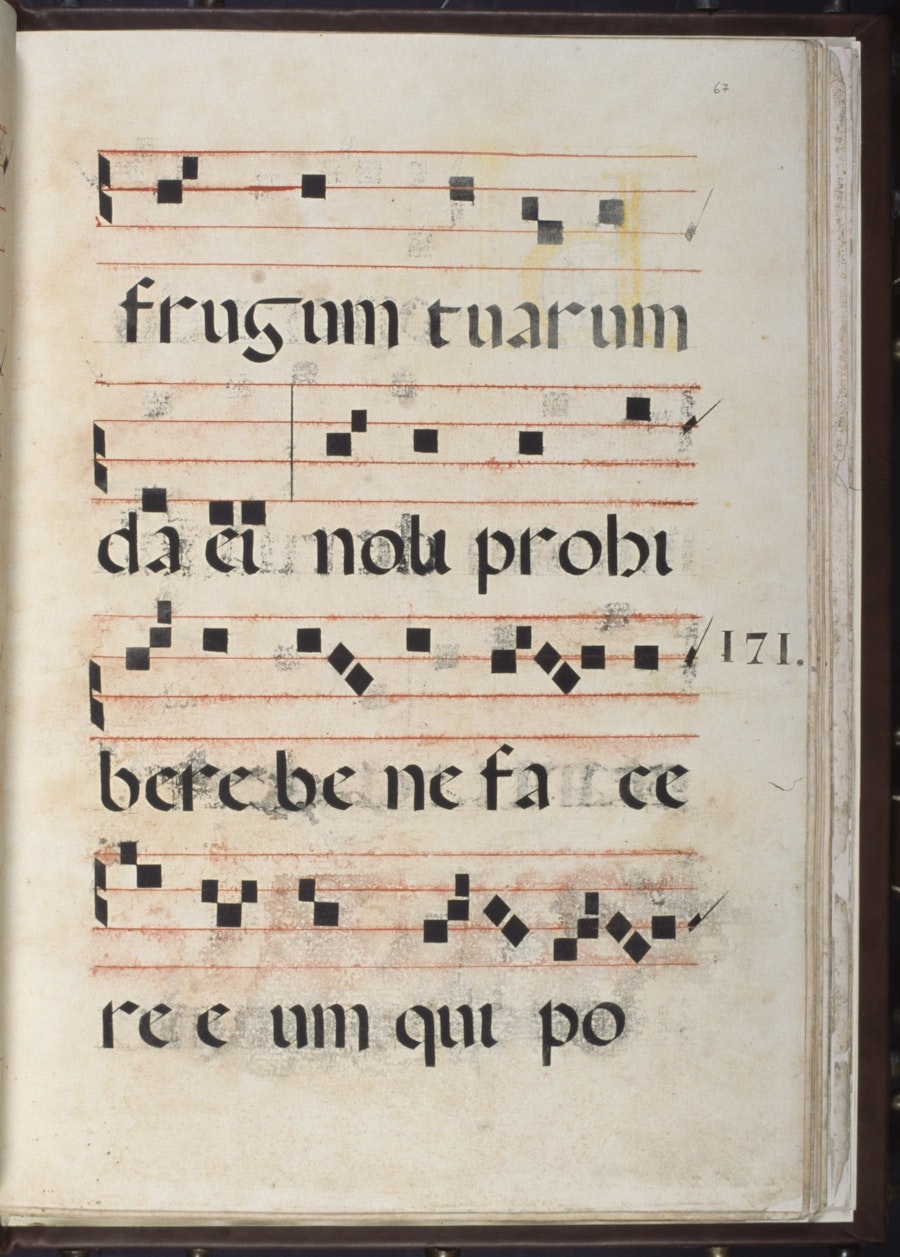 67
frugum tuarum
da ei noli prohi
171.
bere be ne fa ce
re e um qui po